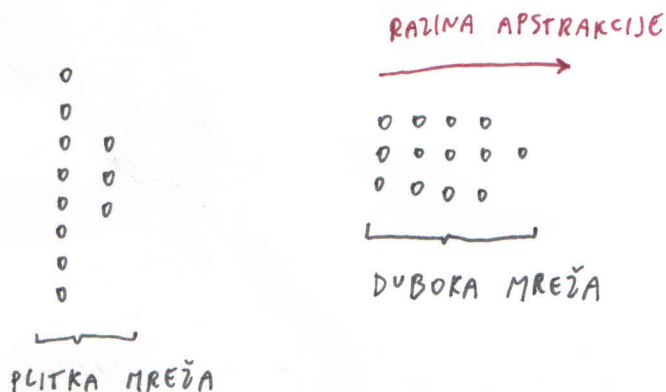 RAZINA APSTRAKCIJE
DUBOKA MREŽA
PLITKA MREŽA